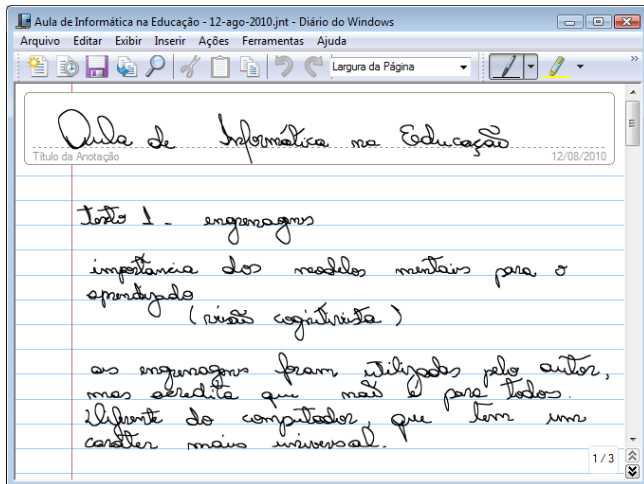 Aula de Informática na Educação - 12-ago-2010.jnt - Diário do Windows
Arquivo Editar Exibir Inserir Ações Ferramentas Ajuda
Largura da Página
Aula de Informática na Educação
Título da Anotação 12/08/2010
texto 1 - engrenagens
importancia dos modelos mentais para o
aprendizado
(visão cognitivista)
as engrenagens foram utilizadas pelo autor,
mas acredita que não é para todos.
Diferente do computador, que tem um
caráter mais universal.
1 / 3